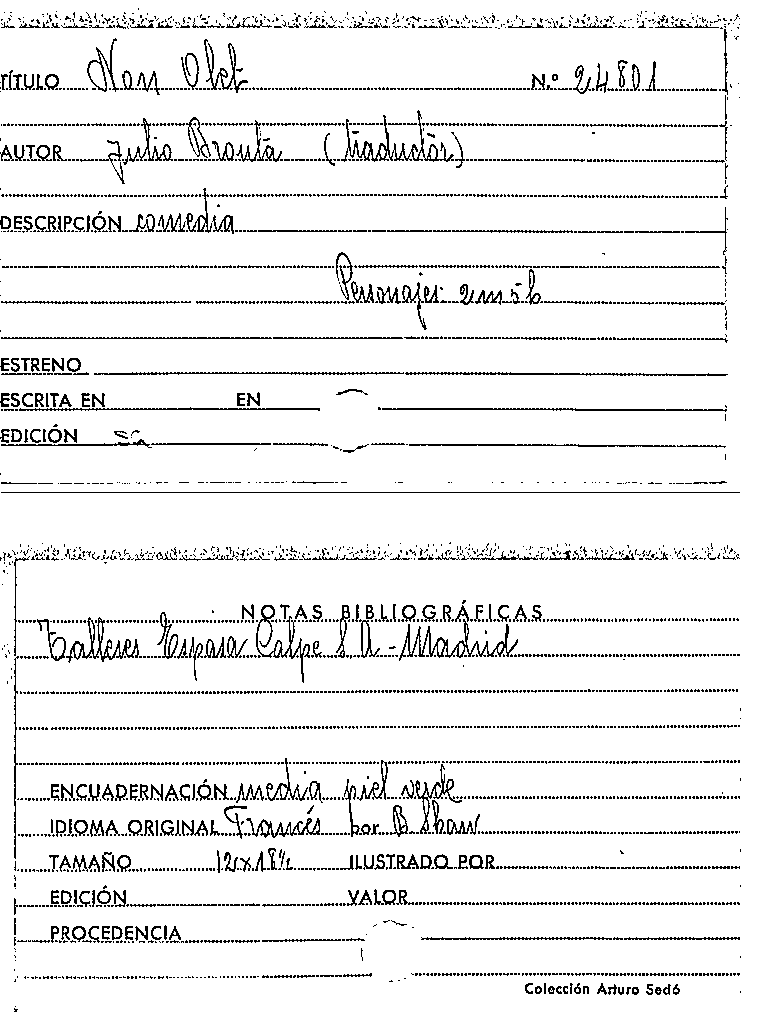 TÍTULO Non Olet N.º 24801
AUTOR Julio Brouta (traductor)
DESCRIPCIÓN comedia
Personajes: 2 m 5 h
ESTRENO
ESCRITA EN EN
EDICIÓN
NOTAS BIBLIOGRÁFICAS
Talleres Espasa Calpe S A - Madrid
ENCUADERNACIÓN media piel verde
IDIOMA ORIGINAL Francés por B Shaw
TAMAÑO 12x18 ILUSTRADO POR
EDICIÓN VALOR
PROCEDENCIA
Colección Arturo Sedó